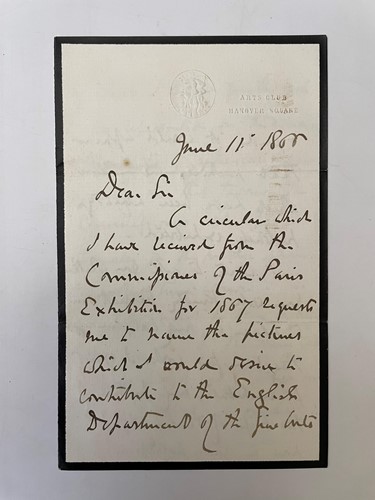 ARTS CLUB
HANOVER SQUARE
June 11 1866
Dear Sir
A circular which
I have received from the
Commissioner of the Paris
Exhibition for 1867 requests
me to name the pictures
which I would desire to
contribute to the English
Department of the Fine Arts